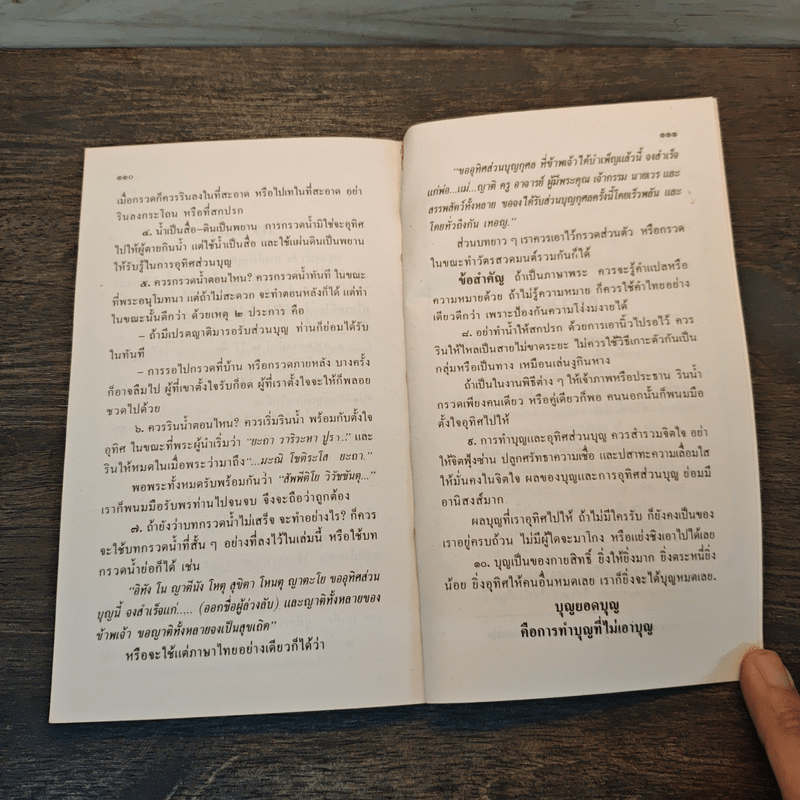 ๑๑๐
เมื่อกรวดก็ควรรินลงในที่สะอาด หรือไปเทในที่สะอาด อย่า
รินลงกระโถน หรือที่สกปรก
๔. น้ำเป็นสื่อ–ดินเป็นพยาน การกรวดน้ำมิใช่จะอุทิศ
ไปให้ผู้ตายกินน้ำ แต่ใช้น้ำเป็นสื่อ และใช้แผ่นดินเป็นพยาน
ให้รับรู้ในการอุทิศส่วนบุญ
๕. ควรกรวดน้ำตอนไหน? ควรกรวดน้ำทันที ในขณะ
ที่พระอนุโมทนา แต่ถ้าไม่สะดวก จะทำตอนหลังก็ได้ แต่ทำ
ในขณะนั้นดีกว่า ด้วยเหตุ ๒ ประการ คือ
– ถ้ามีเปรตญาติมารอรับส่วนบุญ ท่านก็ย่อมได้รับ
ในทันที
– การรอไปกรวดที่บ้าน หรือกรวดภายหลัง บางครั้ง
ก็อาจลืมไป ผู้ที่เขาตั้งใจรับก็อด ผู้ที่เราตั้งใจจะให้ก็พลอย
ชวดไปด้วย
๖. ควรรินน้ำตอนไหน? ควรเริ่มรินน้ำ พร้อมกับตั้งใจ
อุทิศ ในขณะที่พระผู้นำเริ่มว่า “ยะถา วาริวะหา ปูรา..” และ
รินให้หมดในเมื่อพระว่ามาถึง “...มะณิ โชติระโส ยะถา.”
พอพระทั้งหมดรับพร้อมกันว่า “สัพพีติโย วิวัชชันตุ...”
เราก็พนมมือรับพรท่านไปจนจบ จึงจะถือว่าถูกต้อง
๗. ถ้ายังว่าบทกรวดน้ำไม่เสร็จ จะทำอย่างไร? ก็ควร
จะใช้บทกรวดน้ำที่สั้น ๆ อย่างที่ลงไว้ในเล่มนี้ หรือใช้บท
กรวดน้ำย่อก็ได้ เช่น
“อิทัง โน ญาตีนัง โหตุ สุขิตา โหนตุ ญาตะโย ขออุทิศส่วน
บุญนี้ จงสำเร็จแก่..... (ออกชื่อผู้ล่วงลับ) และญาติทั้งหลายของ
ข้าพเจ้า ขอญาติทั้งหลายจงเป็นสุขเถิด”
หรือจะใช้แต่ภาษาไทยอย่างเดียวก็ได้ว่า
๑๑๑
“ขออุทิศส่วนบุญกุศล ที่ข้าพเจ้าได้บำเพ็ญแล้วนี้ จงสำเร็จ
แก่พ่อ...แม่...ญาติ ครู อาจารย์ ผู้มีพระคุณ เจ้ากรรม นายเวร และ
สรรพสัตว์ทั้งหลาย ขอจงได้รับส่วนบุญกุศลครั้งนี้โดยเร็วพลัน และ
โดยทั่วถึงกัน เทอญ.”
ส่วนบทยาว ๆ เราควรเอาไว้กรวดส่วนตัว หรือกรวด
ในขณะทำวัตรสวดมนต์รวมกันก็ได้
ข้อสำคัญ ถ้าเป็นภาษาพระ ควรจะรู้คำแปลหรือ
ความหมายด้วย ถ้าไม่รู้ความหมาย ก็ควรใช้คำไทยอย่าง
เดียวดีกว่า เพราะป้องกันความโง่งมงายได้
๘. อย่าทำน้ำให้สกปรก ด้วยการเอานิ้วไปรอไว้ ควร
รินให้ไหลเป็นสายไม่ขาดระยะ ไม่ควรใช้วิธีเกาะตัวกันเป็น
กลุ่มหรือเป็นทาง เหมือนเล่นงูกินหาง
ถ้าเป็นในงานพิธีต่าง ๆ ให้เจ้าภาพหรือประธาน รินน้ำ
กรวดเพียงคนเดียว หรือคู่เดียวก็พอ คนนอกนั้นก็พนมมือ
ตั้งใจอุทิศไปให้
๙. การทำบุญและอุทิศส่วนบุญ ควรสำรวมจิตใจ อย่า
ให้จิตฟุ้งซ่าน ปลูกศรัทธาความเชื่อ และปสาทะความเลื่อมใส
ให้มั่นคงในจิตใจ ผลของบุญและการอุทิศส่วนบุญ ย่อมมี
อานิสงส์มาก
ผลบุญที่เราอุทิศไปให้ ถ้าไม่มีใครรับ ก็ยังคงเป็นของ
เราอยู่ครบถ้วน ไม่มีผู้ใดจะมาโกง หรือแย่งชิงเอาไปได้เลย
๑๐. บุญเป็นของกายสิทธิ์ ยิ่งให้ยิ่งมาก ยิ่งตระหนี่ยิ่ง
น้อย ยิ่งอุทิศให้คนอื่นหมดเลย เราก็ยิ่งจะได้บุญหมดเลย.
บุญยอดบุญ
คือการทำบุญที่ไม่เอาบุญ